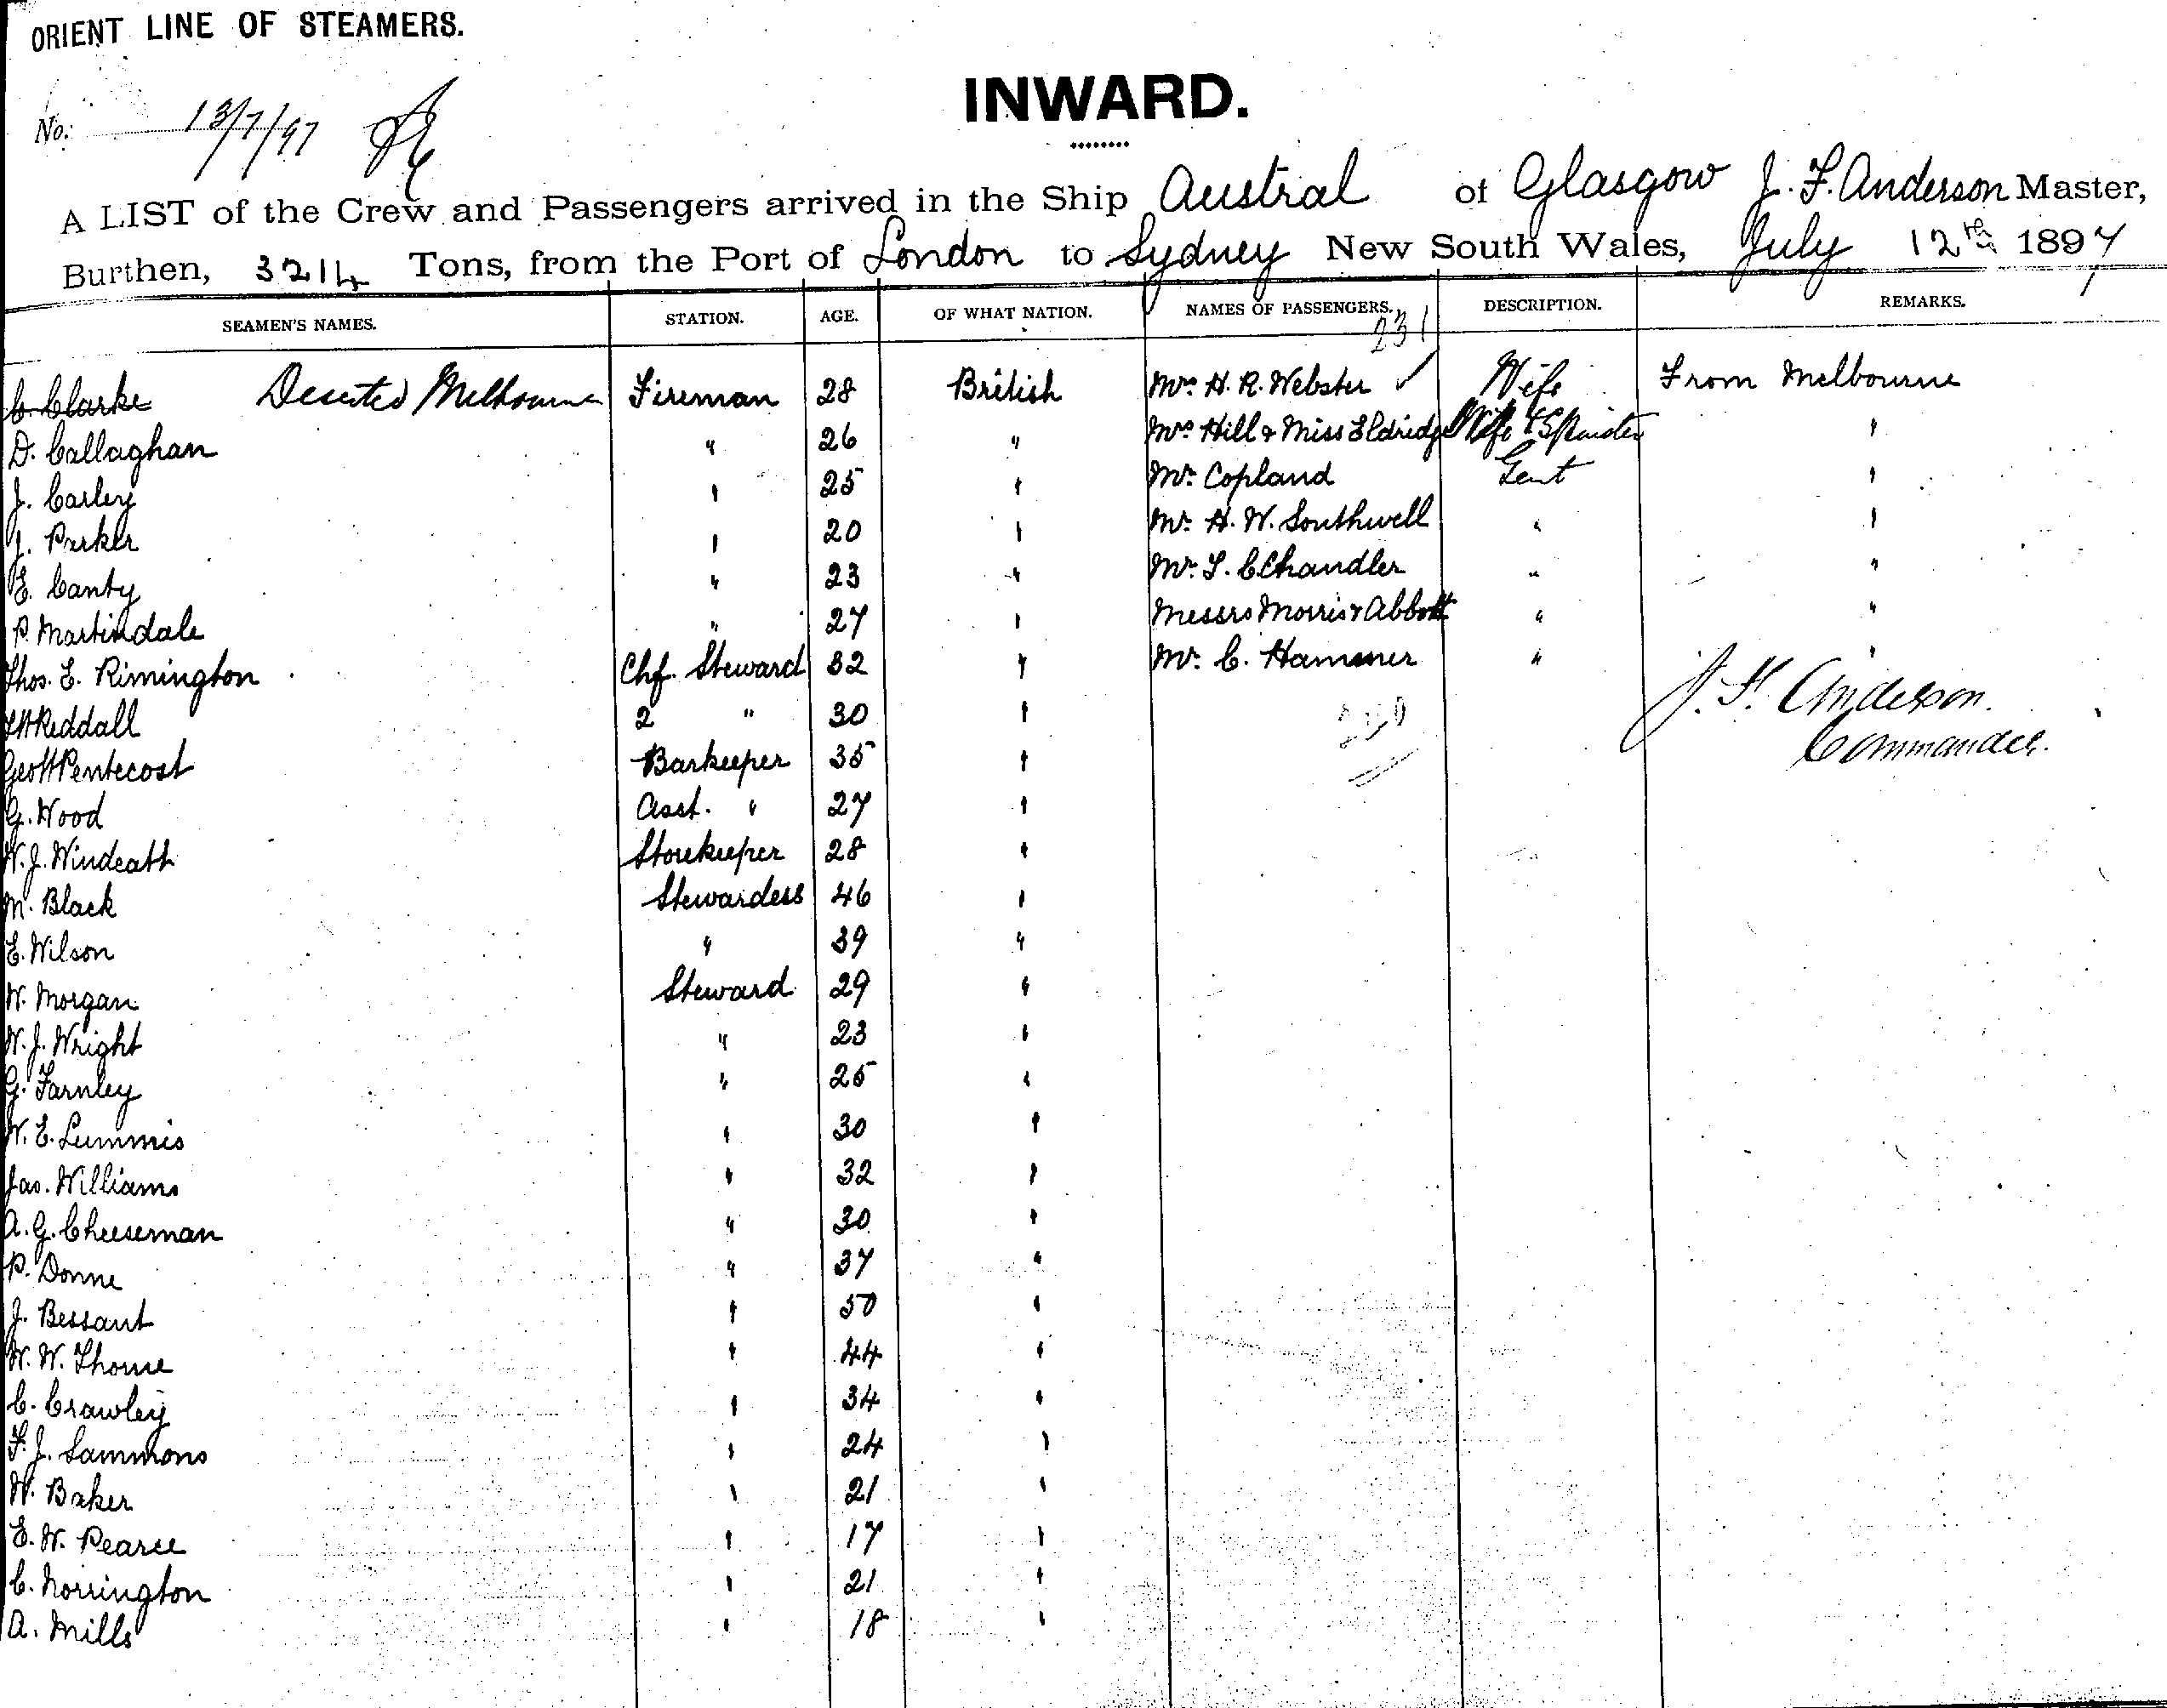 ORIENT LINE OF STEAMERS.
No. 13/7/97
INWARD.
A LIST of the Crew and Passengers arrived in the Ship Austral of Glasgow J. F. Anderson Master,
Burthen, 3214 Tons, from the Port of London to Sydney New South Wales, July 12th 1897
SEAMEN'S NAMES. STATION. AGE. OF WHAT NATION. NAMES OF PASSENGERS. DESCRIPTION. REMARKS.
231
C. Clarke Deserted Melbourne Fireman 28 British Mrs H. R. Webster ✓ Wife From Melbourne
D. Callaghan " 26 " Mrs Hill & Miss Eldridge Wife & Spinster "
J. Carley " 25 " Mr. Copland Gent "
J. Parker " 20 " Mr. H. W. Southwell " "
E. Canty " 23 " Mr. L. C Chandler " "
P. Martindale " 27 " Messrs Morris & Abbott " "
Thos. E. Rimington Chf. Steward 32 " Mr. C. Hammer " "
Reddall 2 " 30 " J. F. Anderson.
Geo H Pentecost Barkeeper 35 " Commander.
G. Wood Asst. " 27 "
W. J. Windeatt Storekeeper 28 "
M. Black Stewardess 46 "
E. Wilson " 39 "
W. Morgan Steward 29 "
W. J. Wright " 23 "
G. Farnley " 25 "
W. E. Lummis " 30 "
Jas. Williams " 32 "
A. G. Cheeseman " 30 "
P. Donne " 37 "
J. Bessant " 50 "
W. W. Thorne " 44 "
C. Crawley " 34 "
F. J. Sammons " 24 "
W. Baker " 21 "
E. W. Pearce " 17 "
C. Norrington " 21 "
A. Mills " 18 "